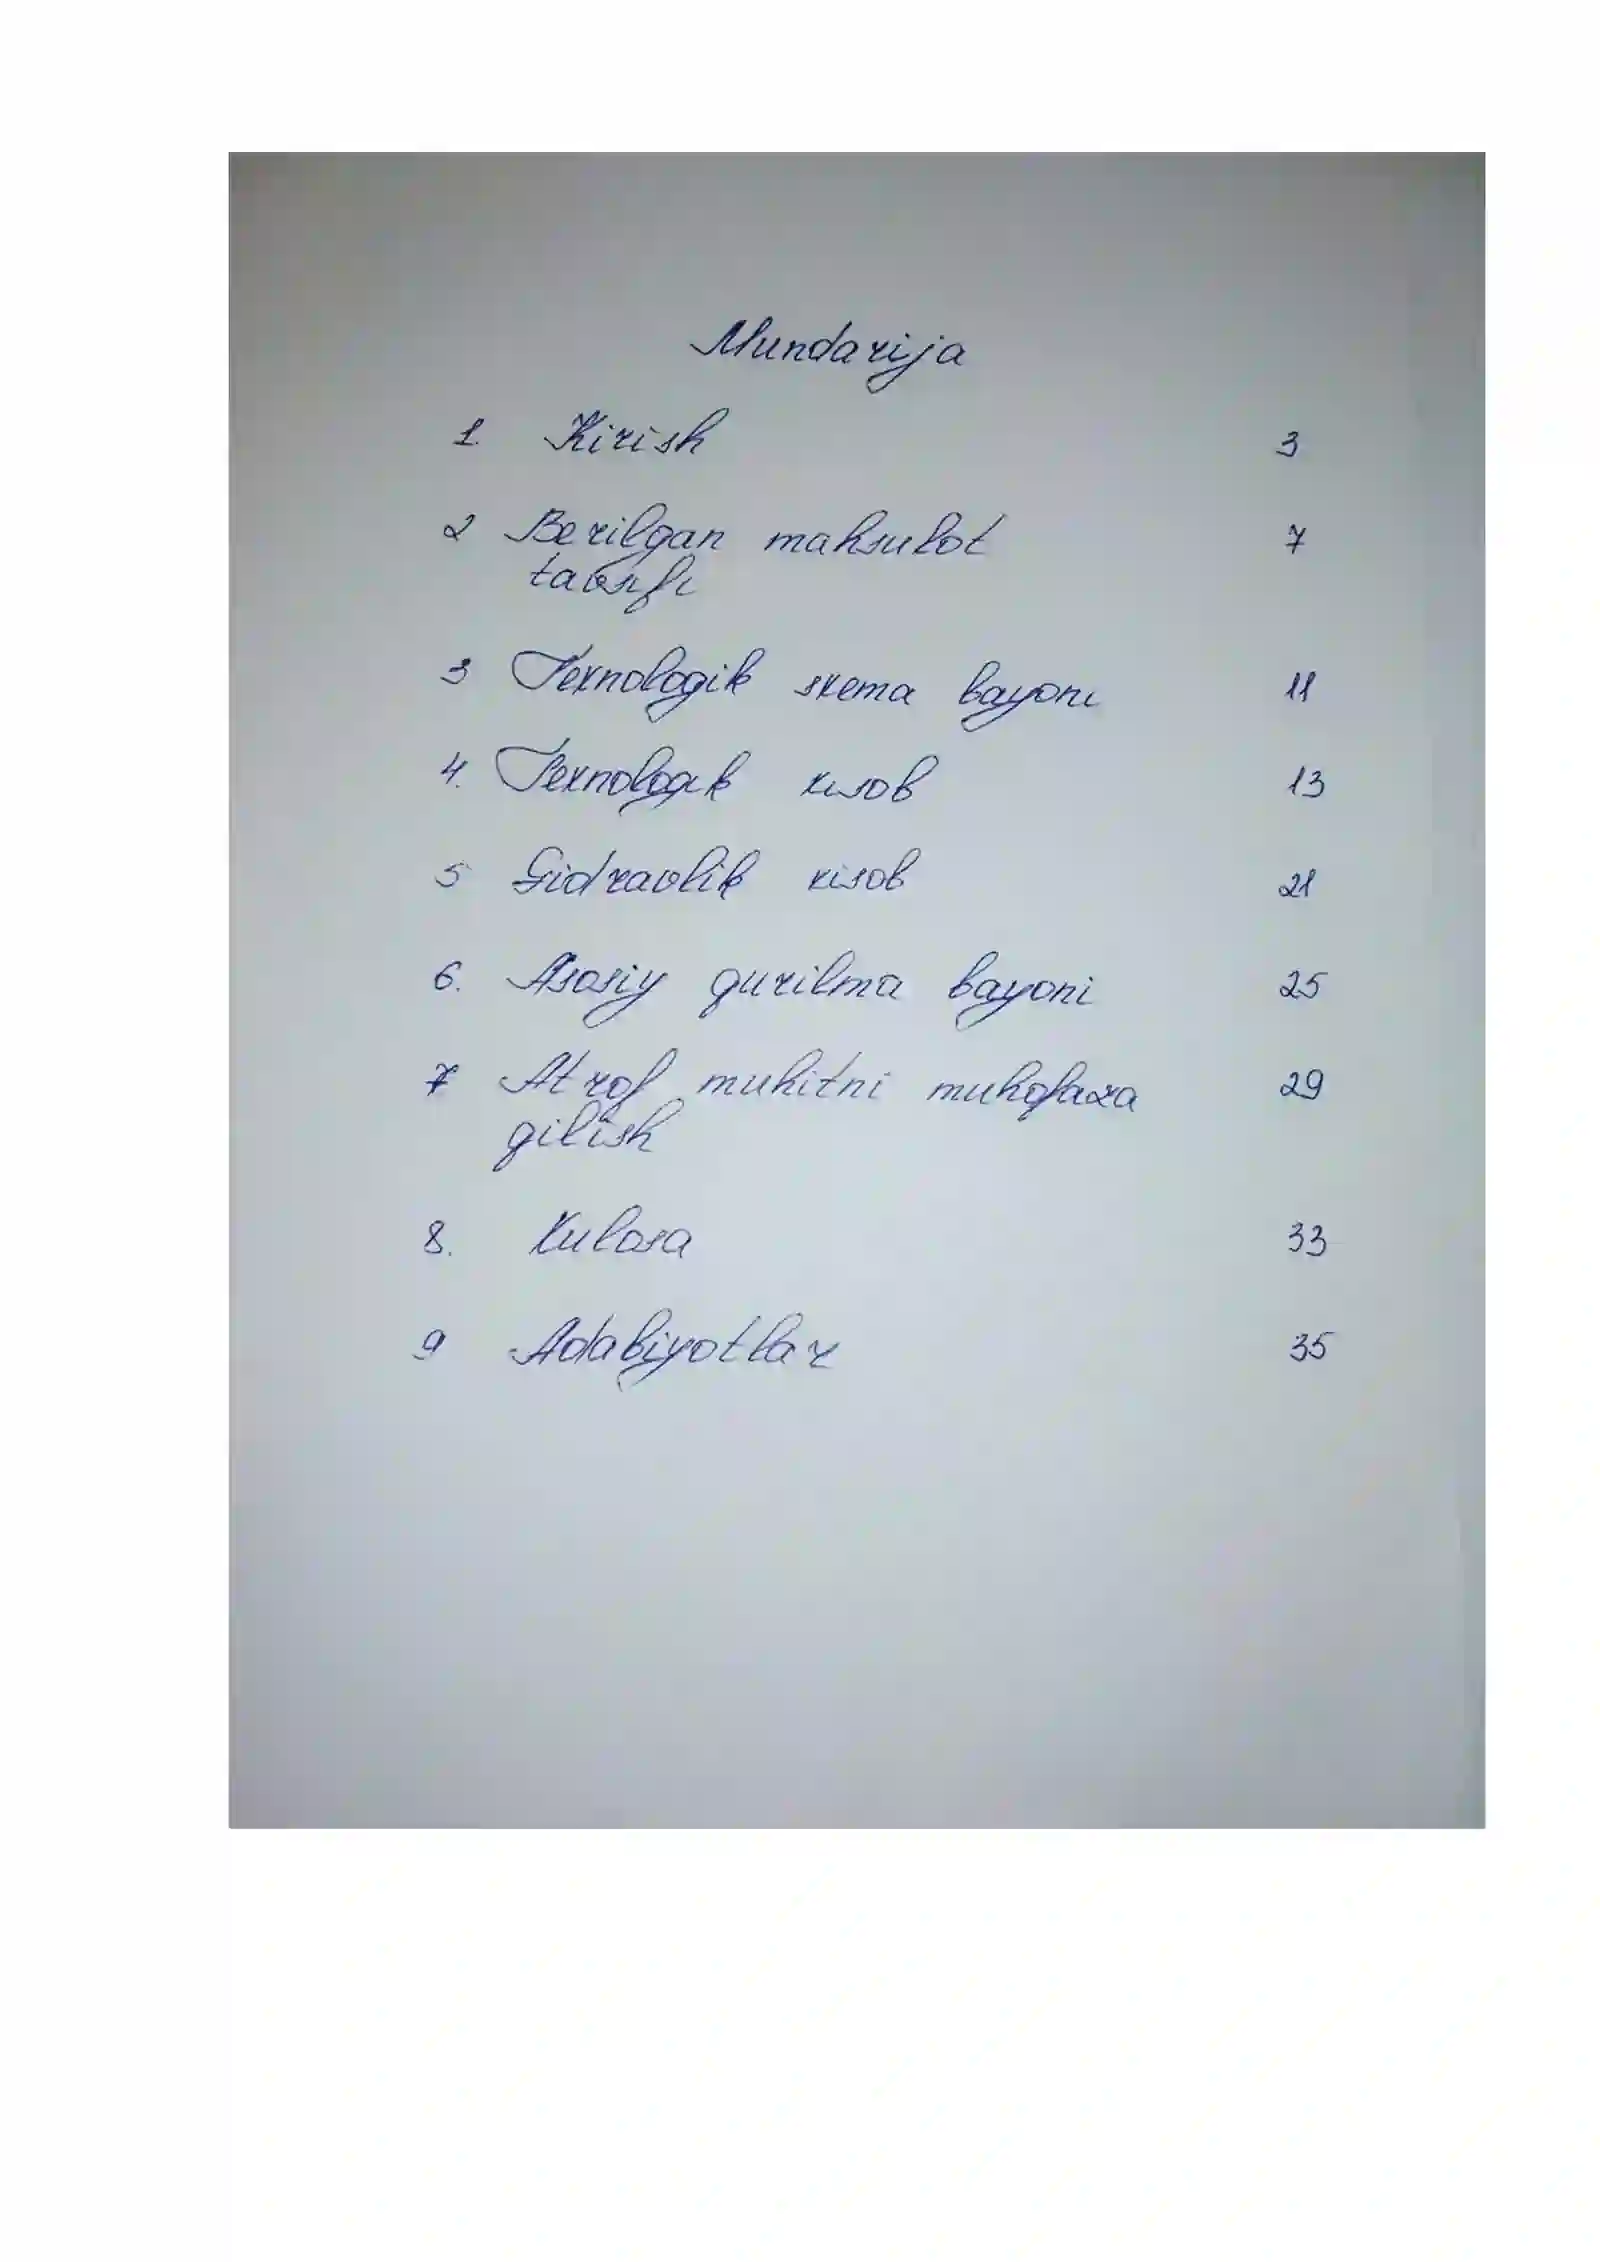 Mundarija
1. Kirish 3
2 Berilgan mahsulot 7
tavsifi
3 Texnologik sxema bayoni 11
4. Texnologik xisob 13
5 Gidravlik xisob 21
6. Asosiy qurilma bayoni 25
7 Atrof muhitni muhofaza 29
qilish
8. Xulosa 33
9 Adabiyotlar 35